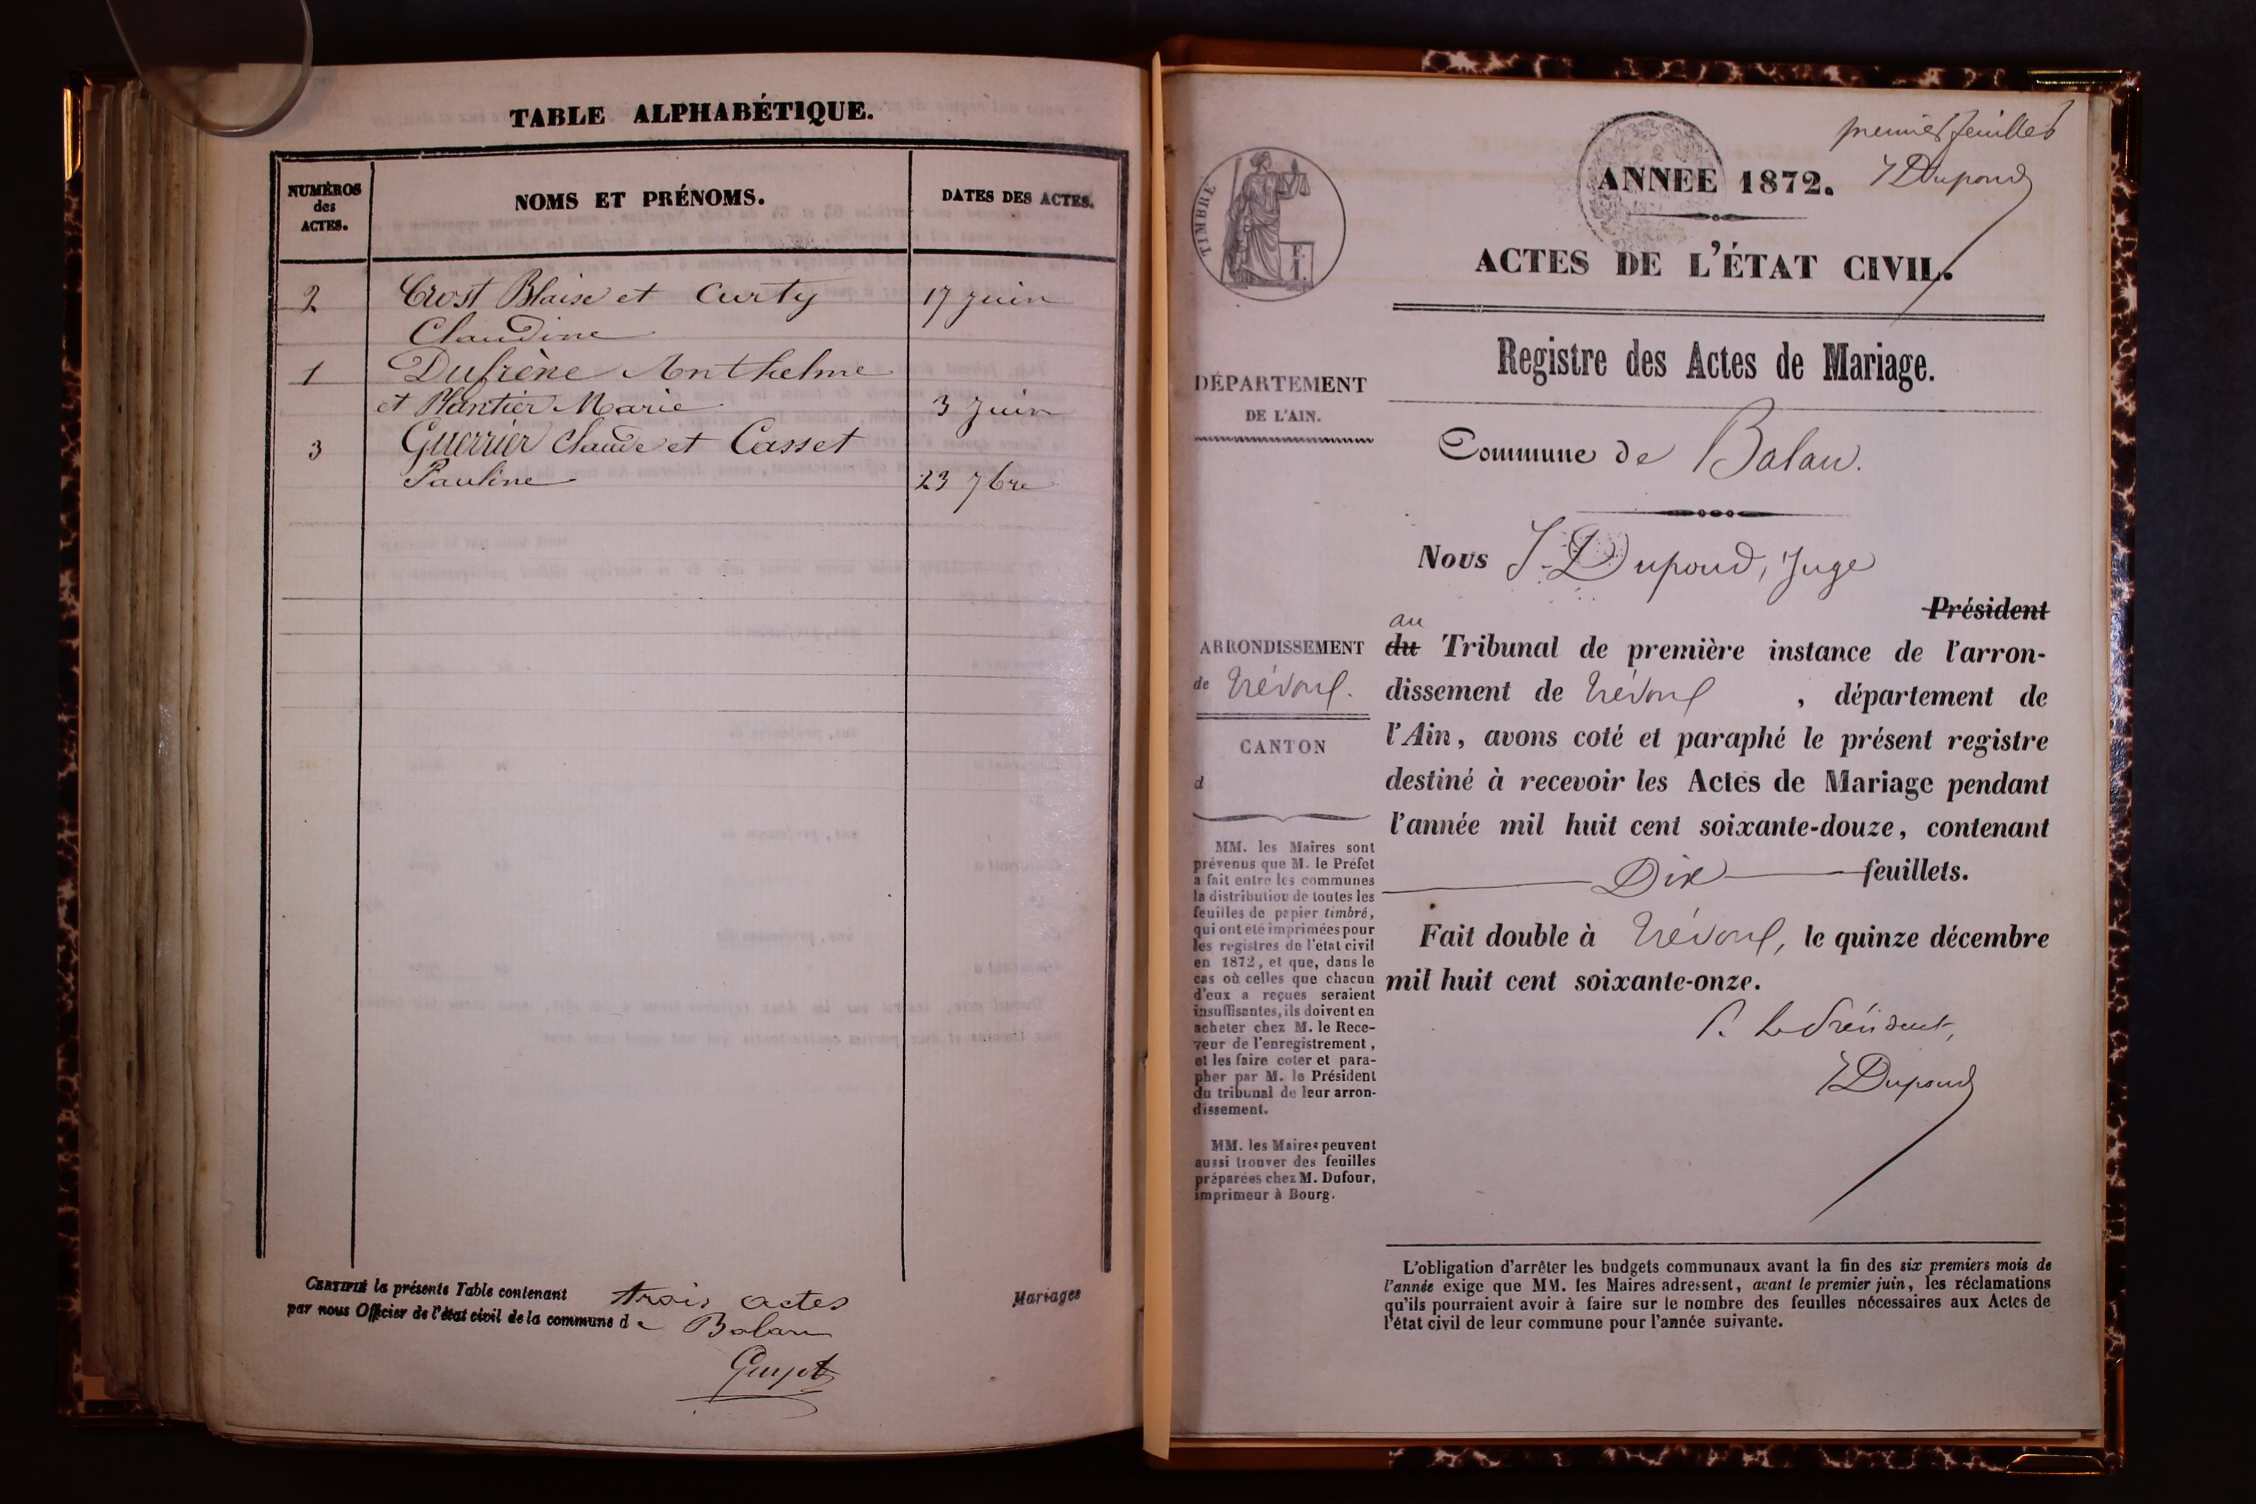 TABLE ALPHABÉTIQUE.
NUMÉROS
des
ACTES.
NOMS ET PRÉNOMS.
DATES DES ACTES.
2 Crost Blaise et Curty 17 juin
Claudine
1 Dufrène Anthelme
et Plantier Marie 3 Juin
3 Guerrier Claude et Casset
Pauline 23 7bre
CERTIFIÉ la présente Table contenant trois actes
par nous Officier de l'état civil de la commune de Balan
Guyot
Mariages
premier feuillet
J Dupond
TIMBRE
ANNEE 1872.
ACTES DE L'ÉTAT CIVIL.
Registre des Actes de Mariage.
DÉPARTEMENT
DE L'AIN.
Commune de Balan.
Nous J. Dupond, Juge
Président
au
ARRONDISSEMENT
de Trévoux.
CANTON
d
du Tribunal de première instance de l'arron-
dissement de Trévoux, département de
l'Ain, avons coté et paraphé le présent registre
destiné à recevoir les Actes de Mariage pendant
l'année mil huit cent soixante-douze, contenant
Dix feuillets.
Fait double à Trévoux, le quinze décembre
mil huit cent soixante-onze.
P. Le Président,
J Dupond
MM. les Maires sont
prévenus que M. le Préfet
a fait entre les communes
la distribution de toutes les
feuilles de papier timbré,
qui ont été imprimées pour
les registres de l'état civil
en 1872, et que, dans le
cas où celles que chacun
d'eux a reçues seraient
insuffisantes, ils doivent en
acheter chez M. le Rece-
veur de l'enregistrement,
et les faire coter et para-
pher par M. le Président
du tribunal de leur arron-
dissement.
MM. les Maires peuvent
aussi trouver des feuilles
préparées chez M. Dufour,
imprimeur à Bourg.
L'obligation d'arrêter les budgets communaux avant la fin des six premiers mois de
l'année exige que MM. les Maires adressent, avant le premier juin, les réclamations
qu'ils pourraient avoir à faire sur le nombre des feuilles nécessaires aux Actes de
l'état civil de leur commune pour l'année suivante.